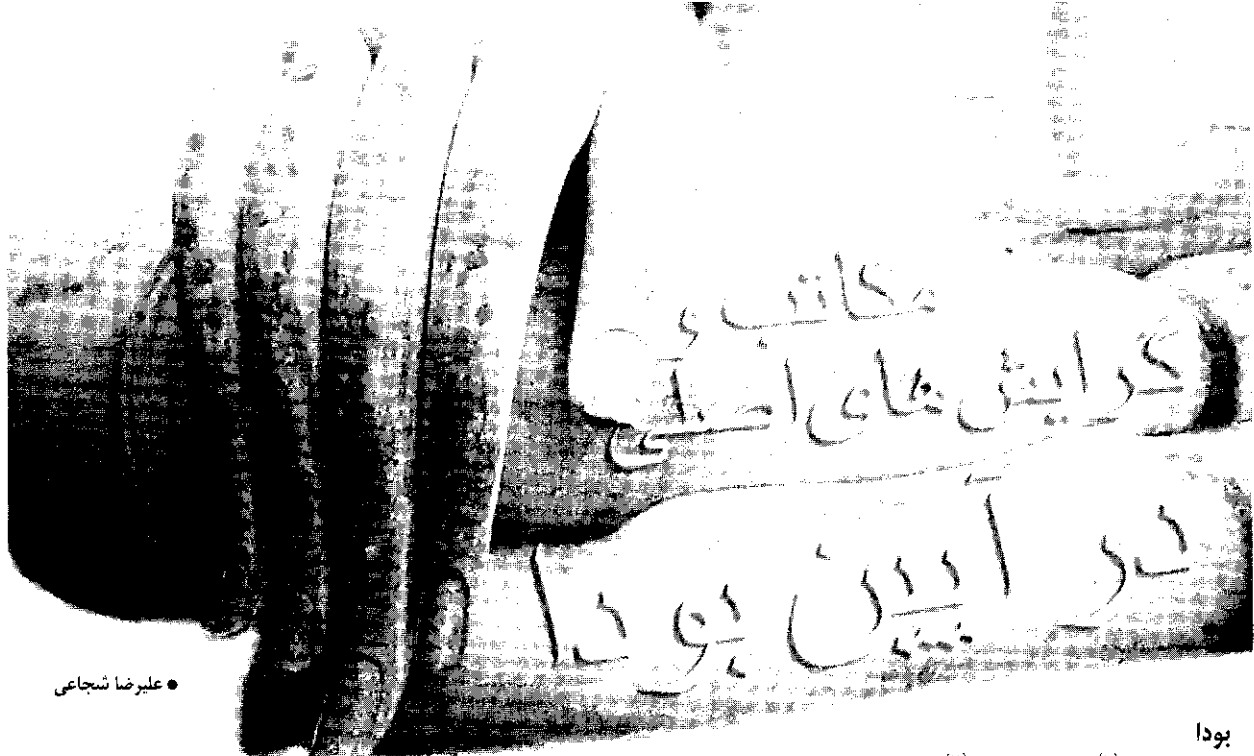 مکاتب و
گرایش های اصلی
در آیین بودا
● علیرضا شجاعی
بودا